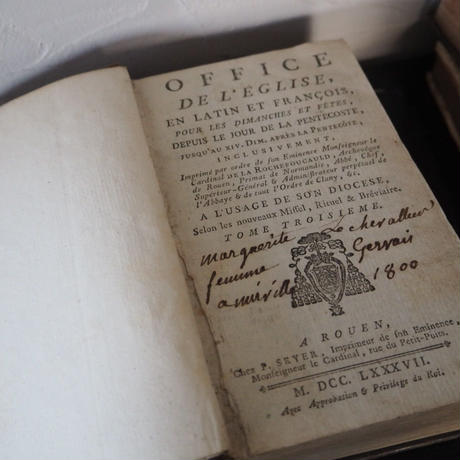 OFFICE
DE L'ÉGLISE,
EN LATIN ET FRANÇOIS,
POUR LES DIMANCHES ET FÊTES,
DEPUIS LE JOUR DE LA PENTECOSTE,
JUSQU'AU XIV. DIM. APRÈS LA PENTECÔTE,
INCLUSIVEMENT,
Imprimé par ordre de son Eminence Monseigneur le
Cardinal DE LA ROCHEFOUCAULD, Archevêque
de Rouen, Primat de Normandie, Abbé, Chef,
Supérieur-Général & Administrateur perpétuel de
l'Abbaye & de tout l'Ordre de Cluny, &c.
A L'USAGE DE SON DIOCESE,
Selon les nouveaux Missel, Rituel & Bréviaire.
TOME TROISIEME.
marguerite Lechevallier
femme Gervais
a miville 1800
A ROUEN,
Chez P. SEYER, Imprimeur de son Eminence
Monseigneur le Cardinal, rue du Petit-Puits.
M. DCC. LXXXVII.
Avec Approbation & Privilege du Roi.